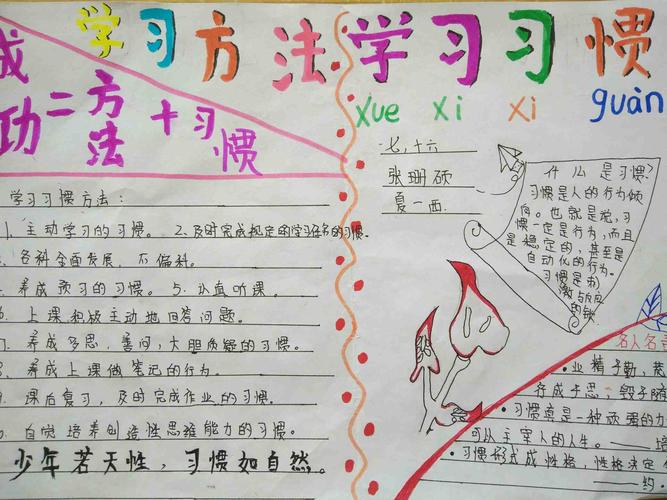 学习方法
成功二方法十习惯
学习习惯方法：
1. 主动学习的习惯。 2. 及时完成规定的学习任务的习惯。
各科全面发展，不偏科。
养成预习的习惯。 5. 认真听课。
上课积极主动地回答问题。
养成多思，善问，大胆质疑的习惯。
养成上课做笔记的行为。
课后复习，及时完成作业的习惯。
自觉培养创造性思维能力的习惯。
少年若天性，习惯如自然。
学习习惯
xue xi xi guàn
七，十六
张珊硕
夏一西
什么是习惯？
习惯是人的行为倾
向。也就是说，习
惯一定是行为，而且
是稳定的，甚至是
自动化的行为。
习惯是刺
激与反应
的锁
名人名言
业精于勤，荒
行成于思，毁于随
习惯真是一种顽强的力
可以主宰人的人生。——培
习惯形成性格，性格决定
——约